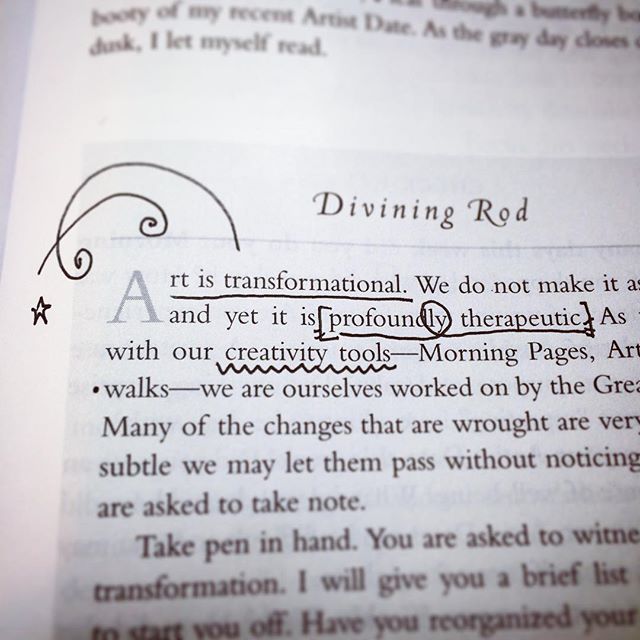 through a butterfly
booty of my recent Artist Date. As the gray day closes
dusk, I let myself read.
Divining Rod
Art is transformational. We do not make it as
and yet it is [profoundly therapeutic.} As
with our creativity tools—Morning Pages, Art
•walks—we are ourselves worked on by the Grea
Many of the changes that are wrought are very
subtle we may let them pass without noticing
are asked to take note.
Take pen in hand. You are asked to witne
transformation. I will give you a brief list
to start you off. Have you reorganized your